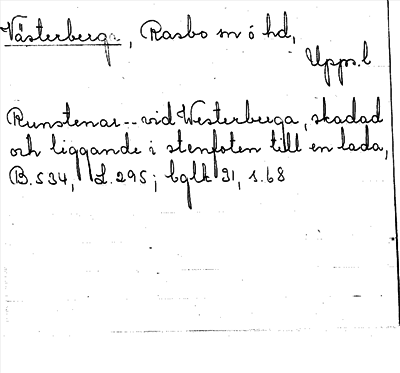 Västerberga, Rasbo sn ó hd,
Upps.l
Runstenar -- vid Westerberga, skadad
och liggande i stenfoten till en lada,
B.534, L.295; bglk 91, s.68